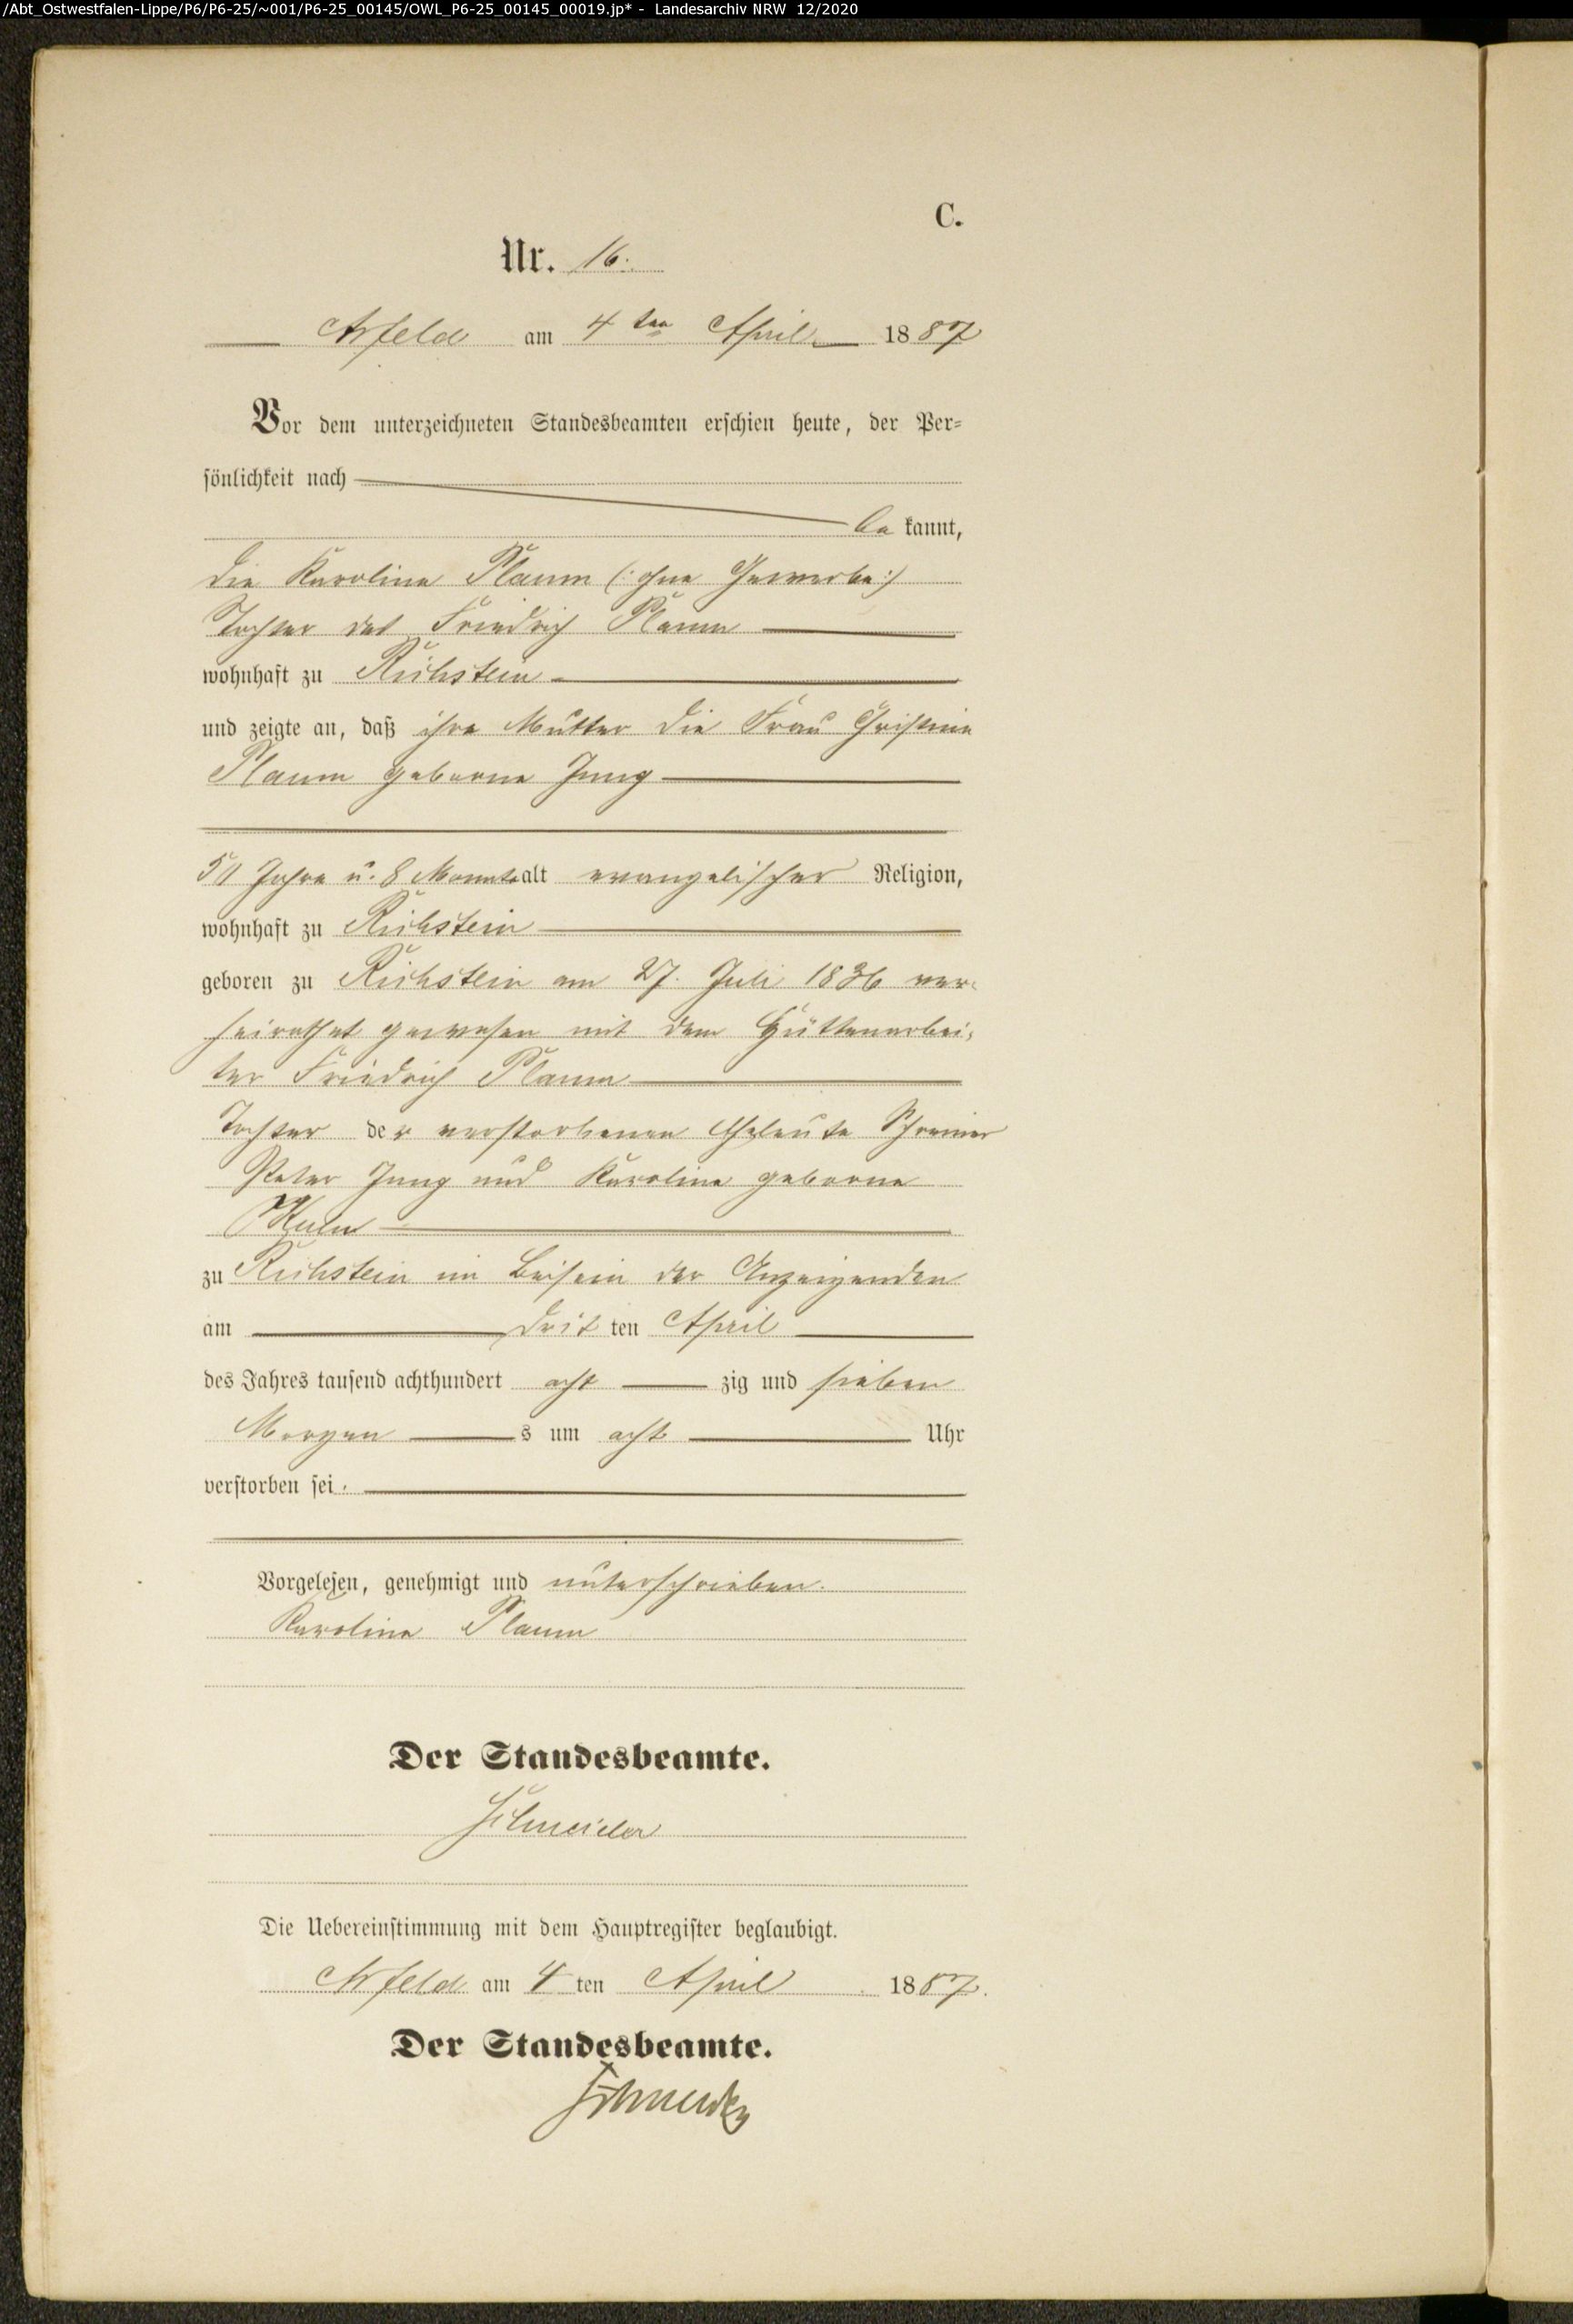 /Abt_Ostwestfalen-Lippe/P6/P6-25/~001/P6-25_00145/OWL_P6-25_00145_00019.jp* - Landesarchiv NRW 12/2020
C.
Nr. 16.
Arfeld am 4ten April 1887
Vor dem unterzeichneten Standesbeamten erschien heute, der Per-
sönlichkeit nach
be kannt,
die Karoline Plaum (: ohne Gewerbe :)
Tochter des Friedrich Plaum
wohnhaft zu Richstein
und zeigte an, daß ihre Mutter die Frau Christine
Plaum geborne Jung
50 Jahre u. 8 Monate alt evangelischer Religion,
wohnhaft zu Richstein
geboren zu Richstein am 27. Juli 1836 ver-
heirathet gewesen mit dem Hüttenarbei-
ter Friedrich Plaum
Tochter der verstorbenen Eheleute Schreiner
Peter Jung und Karoline geborne
zu Richstein im Beisein der Anzeigenden
am drit ten April
des Jahres tausend achthundert acht zig und sieben
Morgen s um acht Uhr
verstorben sei.
Vorgelesen, genehmigt und unterschrieben.
Karoline Plaum
Der Standesbeamte.
Schneider
Die Uebereinstimmung mit dem Hauptregister beglaubigt.
Arfeld am 4 ten April 1887.
Der Standesbeamte.
Schneider